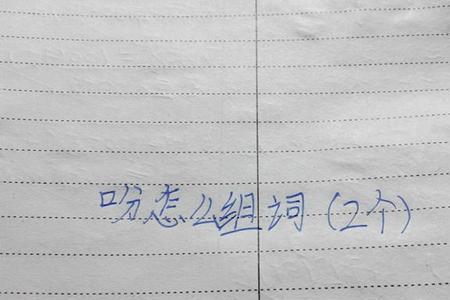 吩怎么组词(2个)